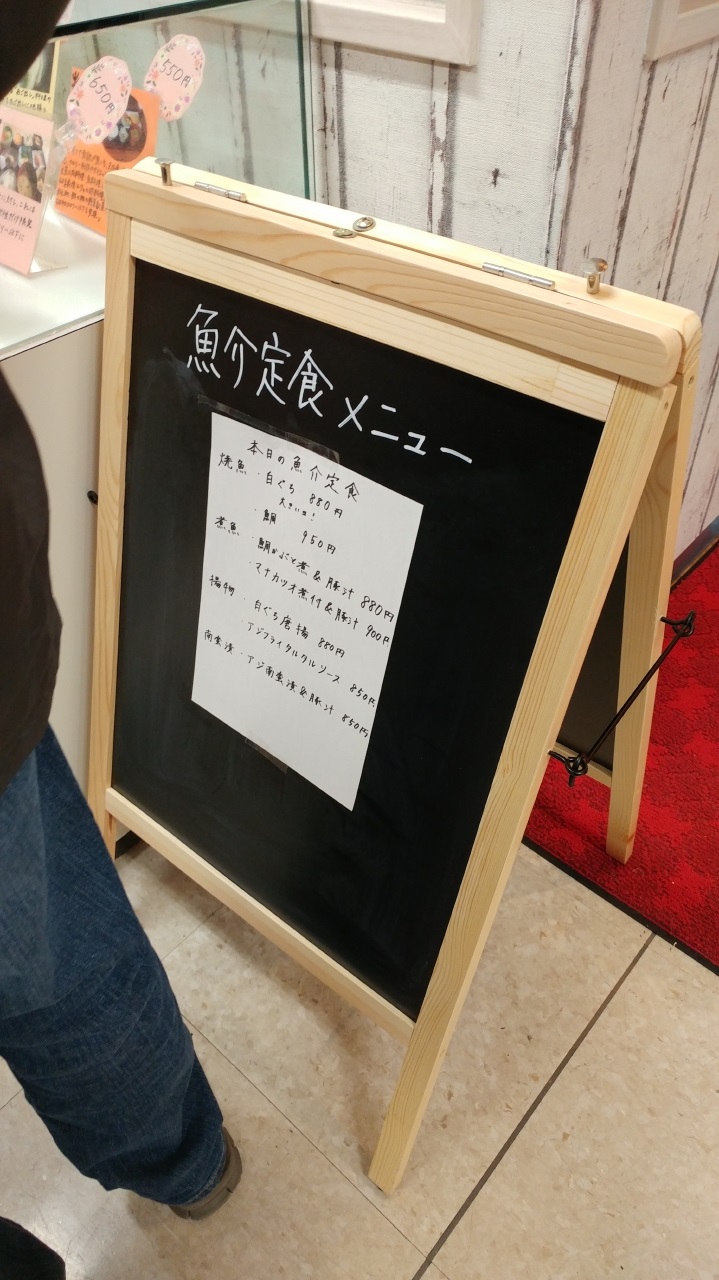 550円
650円
魚介定食メニュー
本日の魚介定食
焼魚・白ぐち 880円
大きいヨ!
・鯛 950円
煮魚・鯛かぶと煮&豚汁 880円
・マナカツオ煮付&豚汁 900円
揚物・白ぐち唐揚 880円
・アジフライタルタルソース 850円
南蛮漬・アジ南蛮漬&豚汁 850円